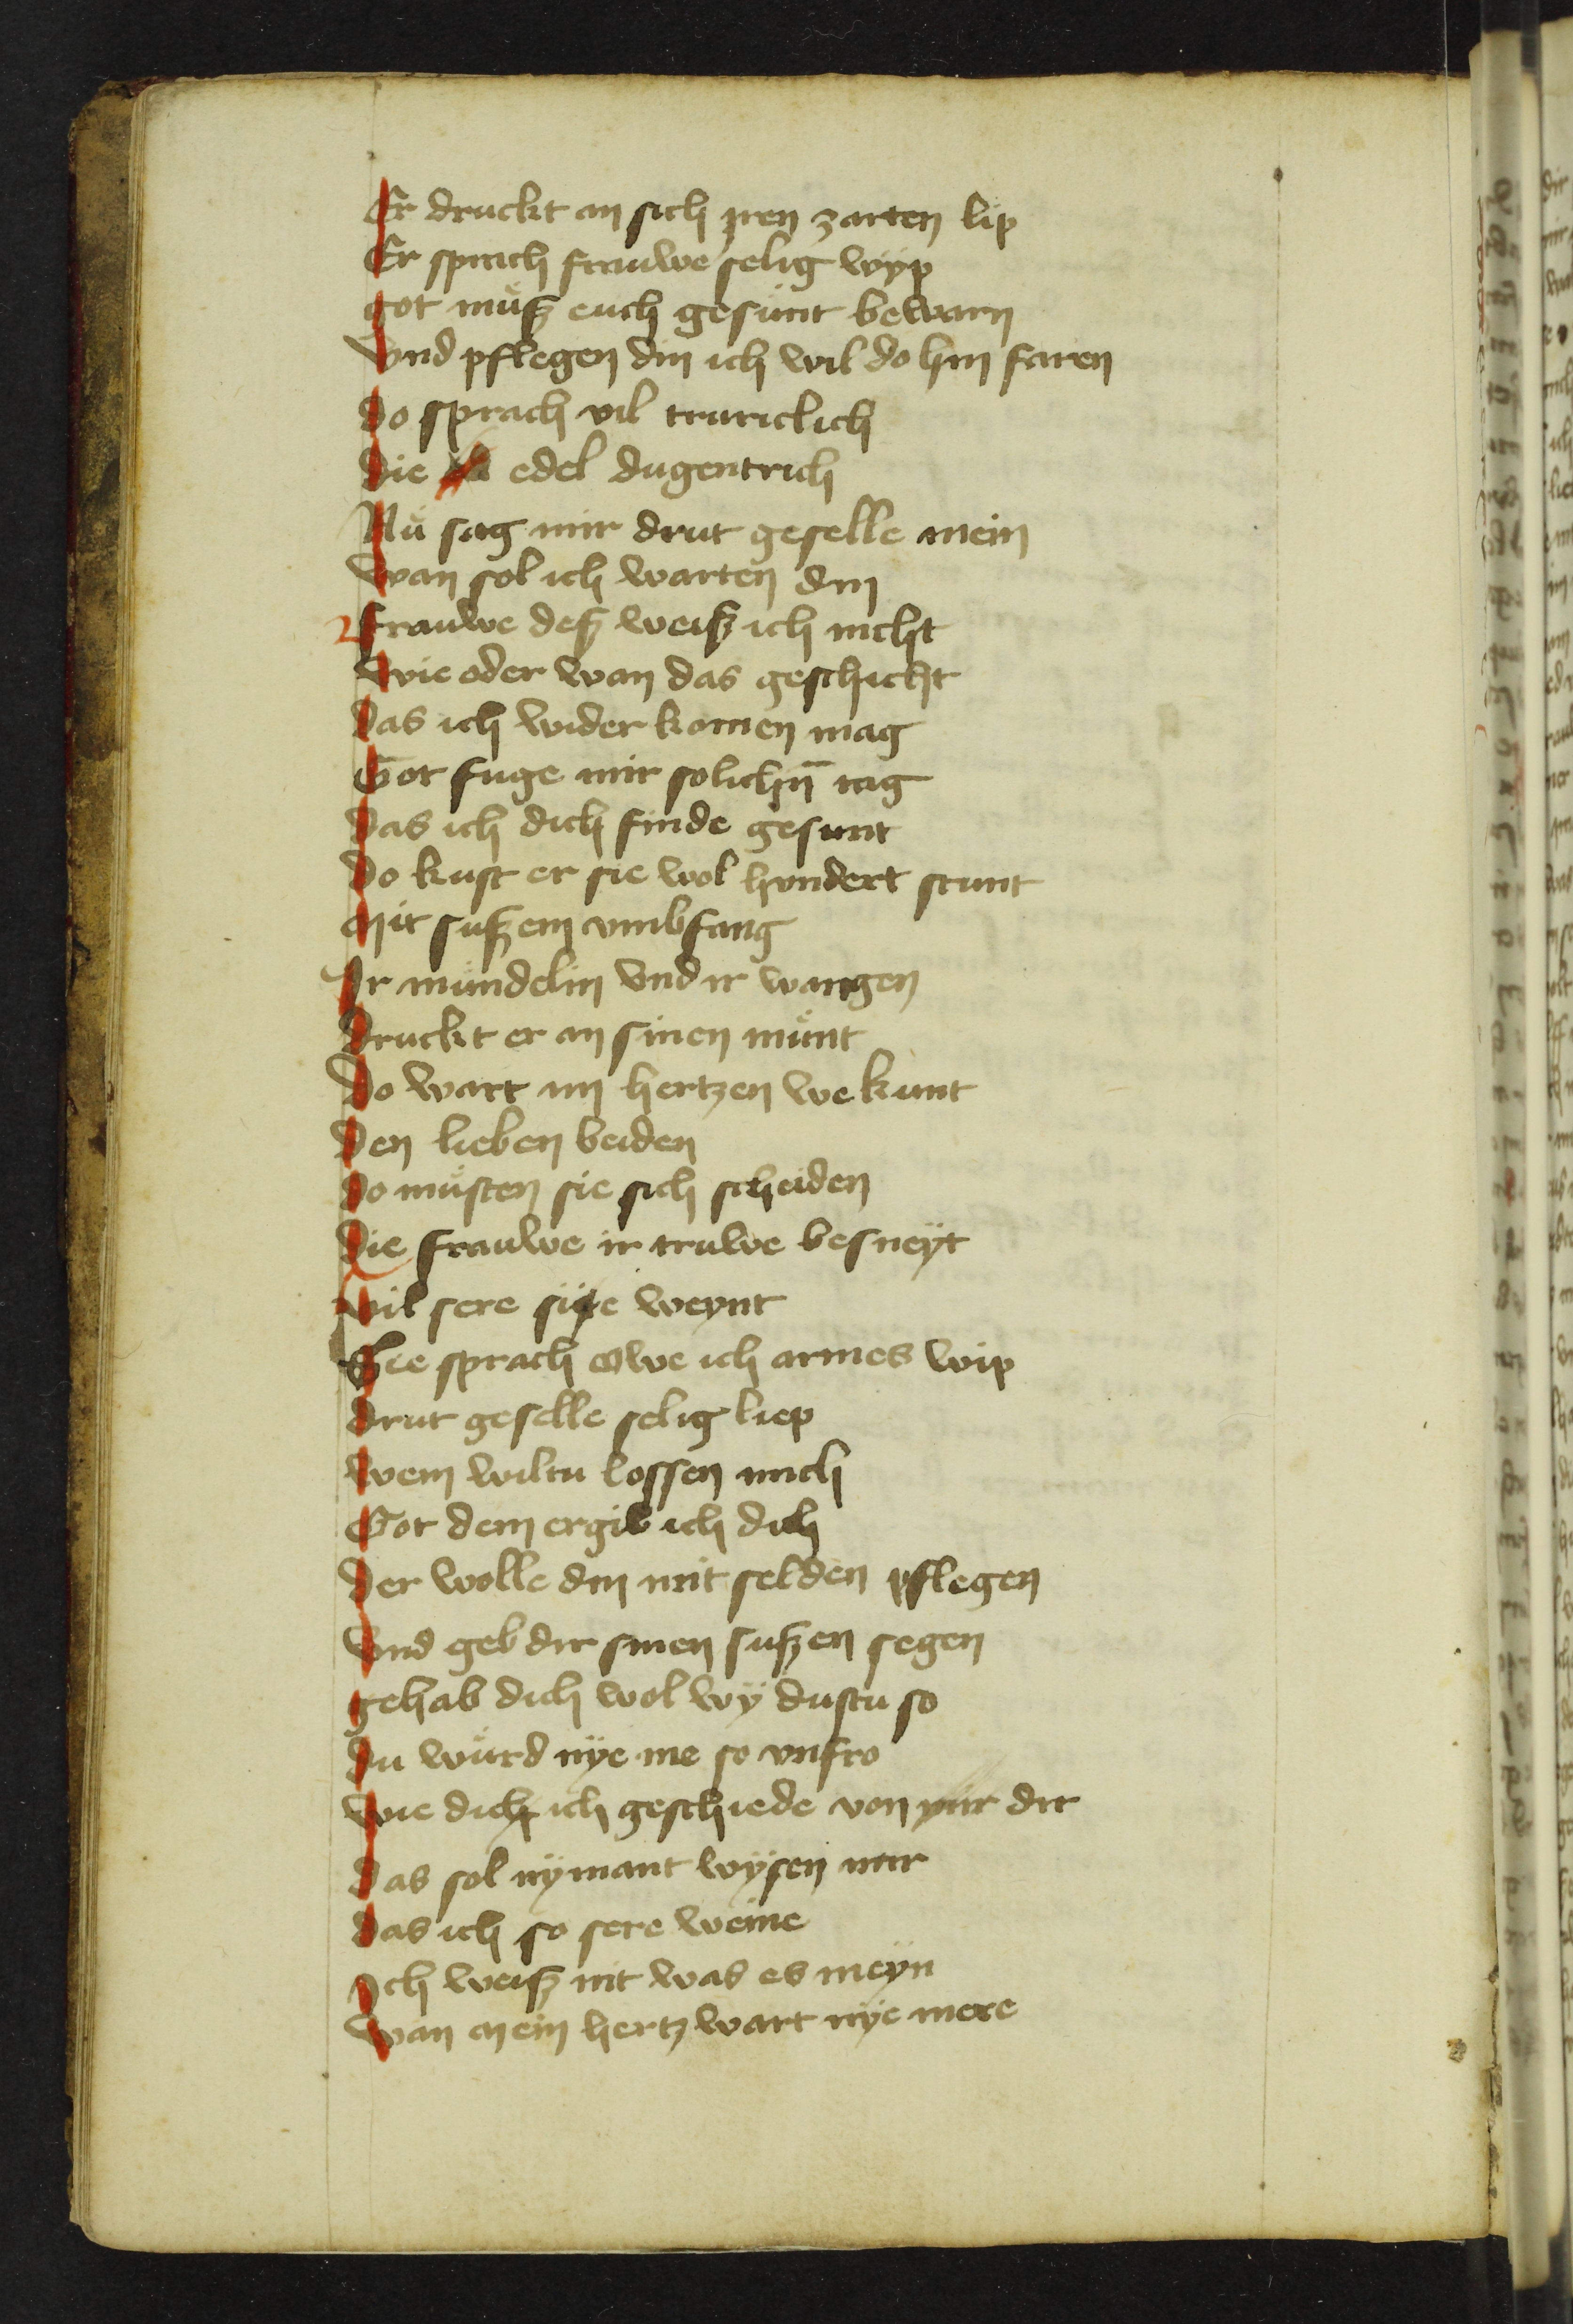 Er druckt an sich yren zarten lip
Er sprach frauwe selig wyp
got muͦß euch gesunt bewarn
Vnd pflegen din ich wil do hin faren
do sprach vil truriclich
die edel dugentrich
Nuͦ sag mir drut geselle mein
wan sol ich warten din
frauwe deß weiß ich nicht
wie oder wan das geschicht
das ich wider komen mag
Got fuge mir solichn̄ tag
das ich dich finde gesunt
do kust er sie wol hundert stunt
Mit sußem vmbfang
Ir mündelin vnd ir wangen
druckt er an sinen muͦnt
Do wart im hertzen we kunt
den lieben beiden
do muͦsten sie sich scheiden
die frauwe ir truwe besneyt
vil sere sie weynt
Sie sprach owe ich armes wip
drut geselle selig liep
wem wiltu lossen mich
Got dem ergib ich dich
der wolle din mit selden pflegen
Vnd geb dir sinen sußen segen
gehab dich wol wÿ dustu so
du wuͦrd nÿe me so vnfro
wie dich ich geschiede von mir dir
das sol nÿmant wÿsen mir
das ich so sere weine
Ich weiß nit was es meyn
wan mein hertz wart nÿe mere